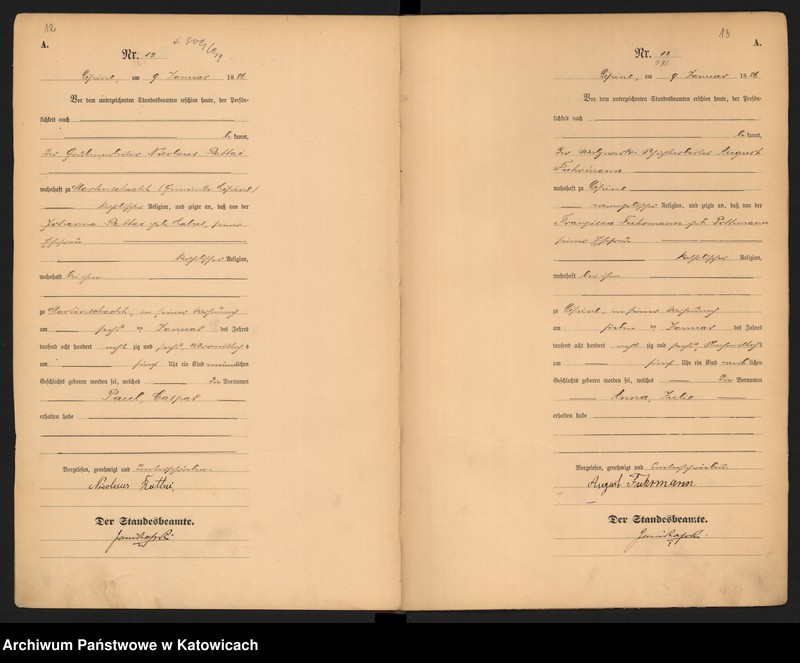 12
A.
Nr. 12
am 9 Januar 1886
Vor dem unterzeichneten Standesbeamten erschien heute, der Persön-
lichkeit nach
be kannt,
der Nicolaus
wohnhaft zu Martinschacht (Gemeinde
katholischer Religion, und zeigte an, daß von der
Johanna geb. seiner
Ehefrau
katholischer Religion,
wohnhaft bei ihm
zu Martinschacht, in seiner Wohnung
am sechs ten Januar des Jahres
tausend acht hundert acht zig und sechs, Vormittags
um fünf Uhr ein Kind männlichen
Geschlechts geboren worden sei, welches die Vornamen
Paul, Caspar
erhalten habe
Vorgelesen, genehmigt und unterschrieben.
Nicolaus
Der Standesbeamte.
13
A.
Nr. 13
am 9 Januar 1886
Vor dem unterzeichneten Standesbeamten erschien heute, der Persön-
lichkeit nach
be kannt,
der August
Fuhrmann
wohnhaft zu
evangelischer Religion, und zeigte an, daß von der
Franziska Fuhrmann geb.
seiner Ehefrau
katholischer Religion,
wohnhaft bei ihm
zu in seiner Wohnung
am sieben ten Januar des Jahres
tausend acht hundert acht zig und sechs, Nachmittags
um fünf Uhr ein Kind weib lichen
Geschlechts geboren worden sei, welches die Vornamen
Anna, Julie
erhalten habe
Vorgelesen, genehmigt und unterschrieben.
August Fuhrmann
Der Standesbeamte.
Archiwum Państwowe w Katowicach